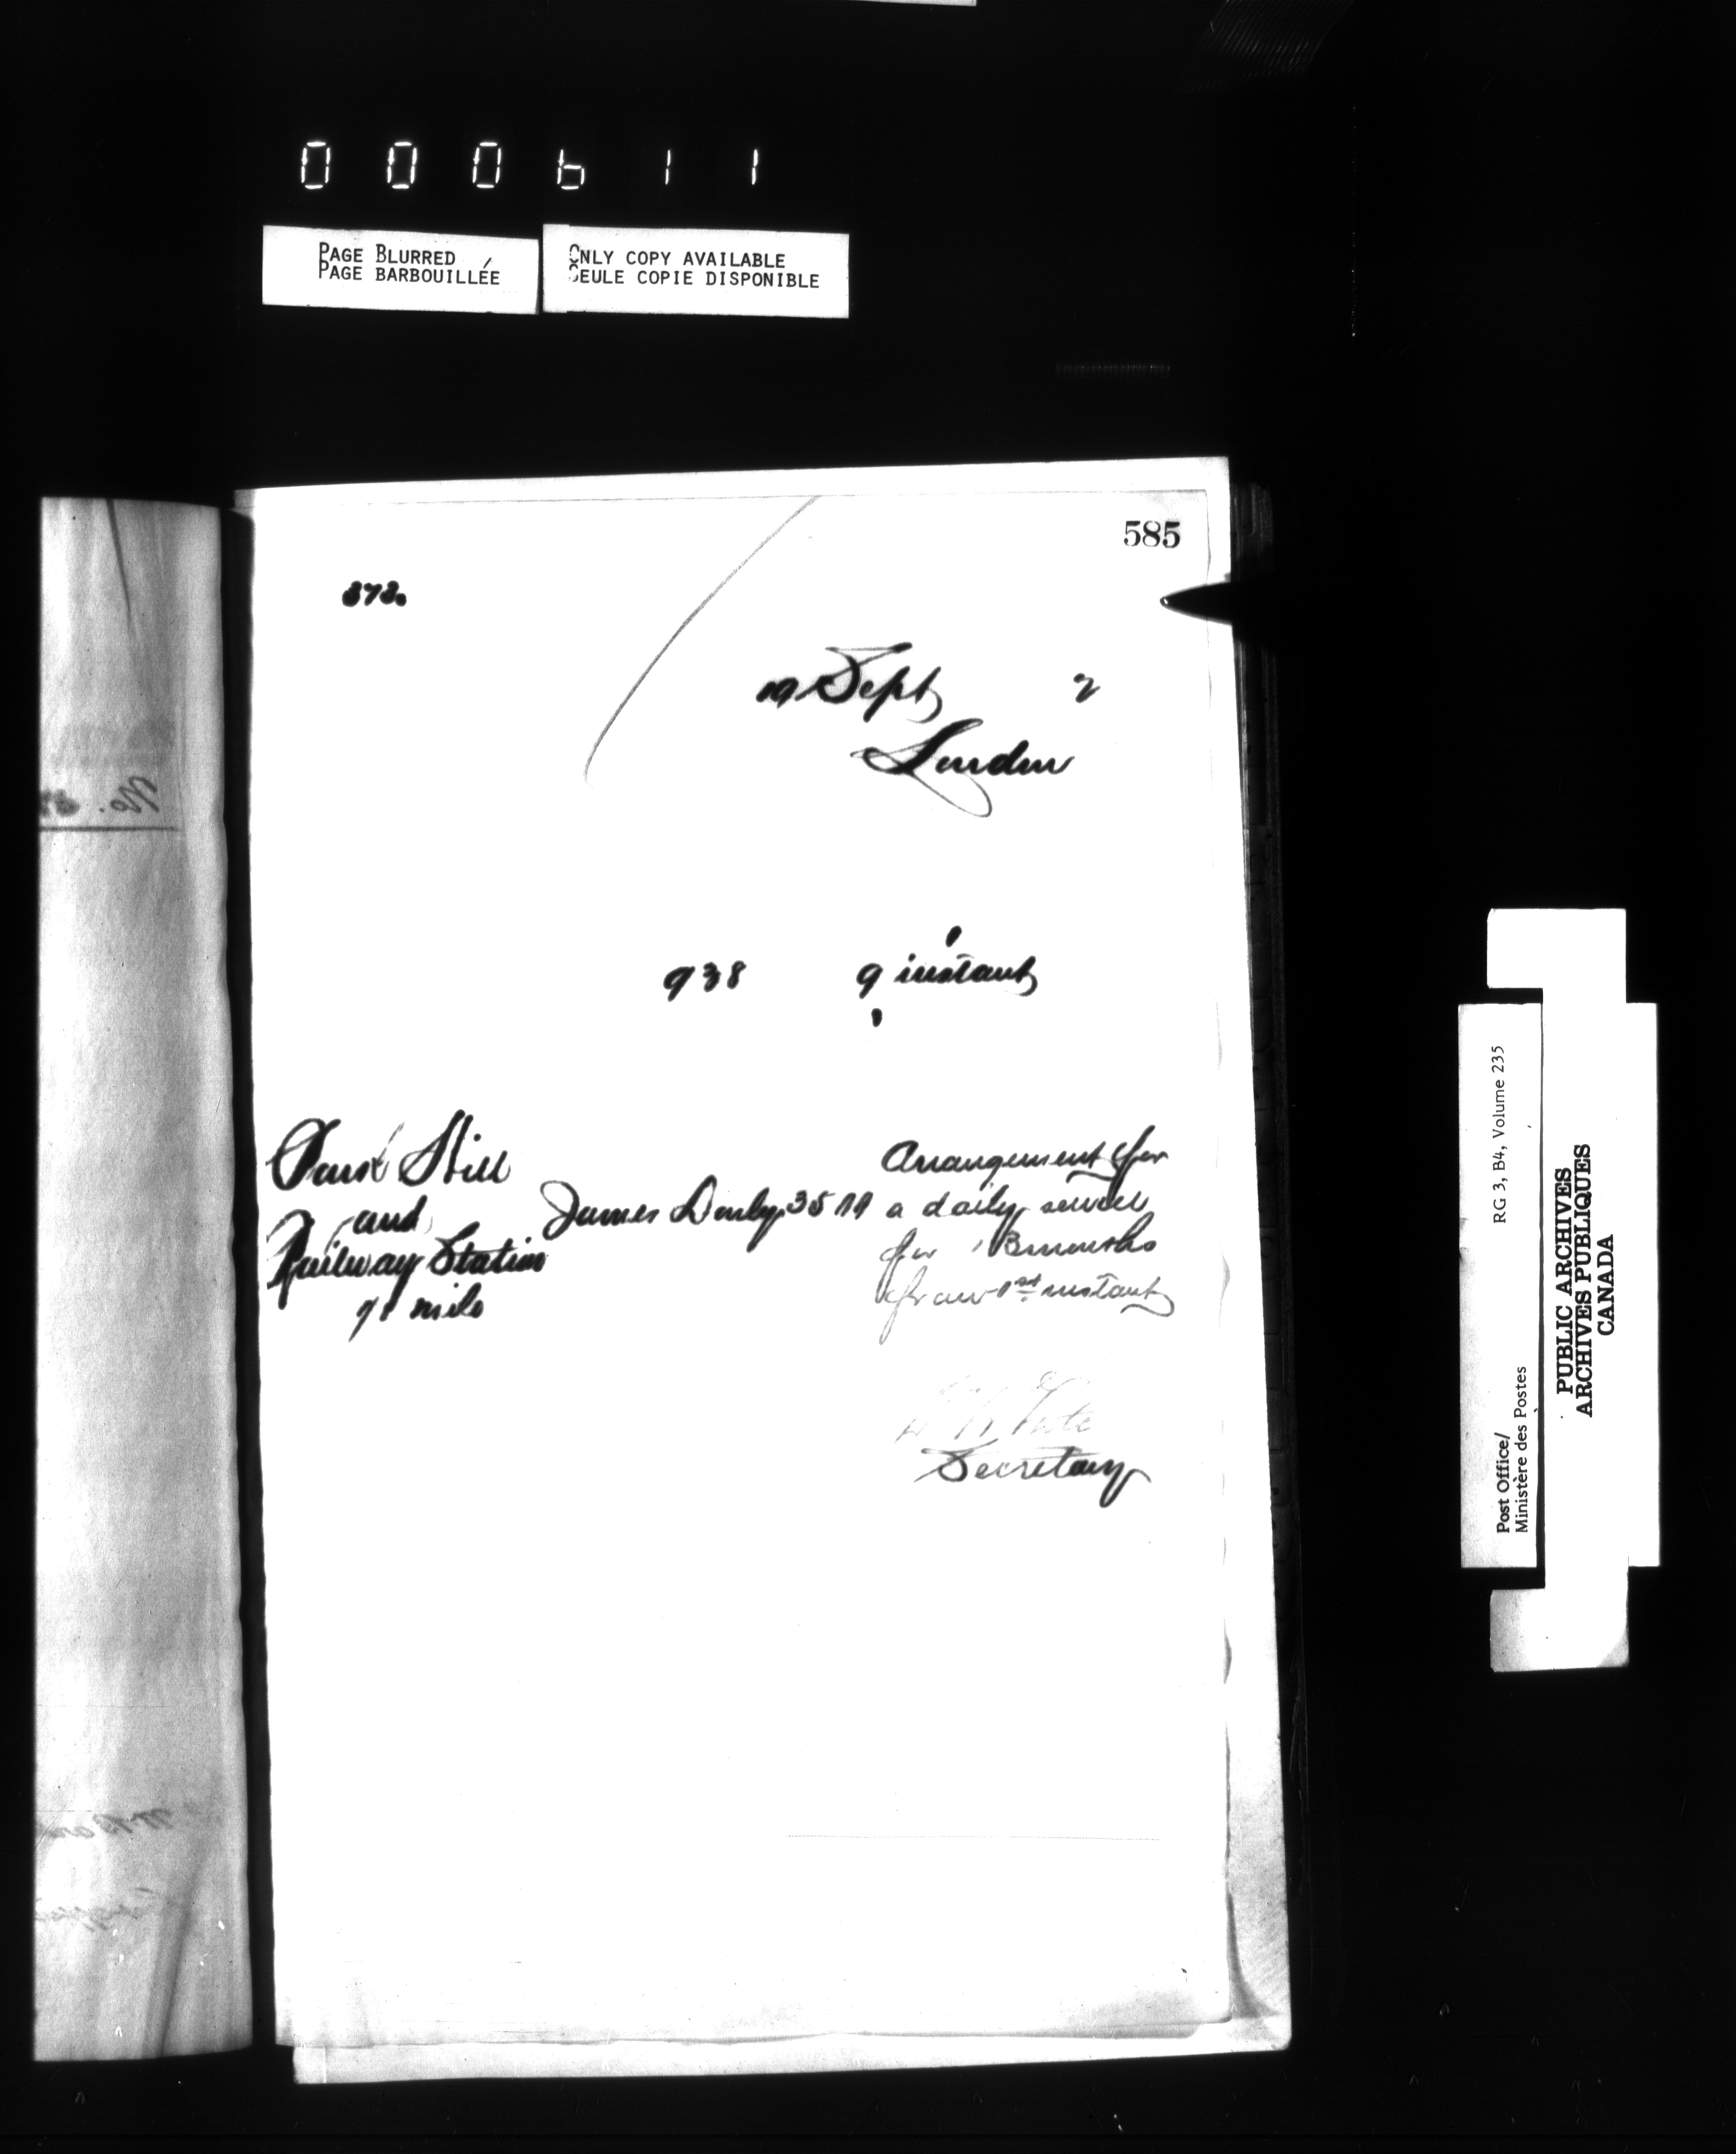 000611
PAGE BLURRED
PAGE BARBOUILLÉE
ONLY COPY AVAILABLE
SEULE COPIE DISPONIBLE
585
373.
19 Sept 2
London
938 9 instant
Hill
and
Railway Station
mile
James 35
Arrangement for
a daily service
for 3 months
from 1st instant
White
Secretary
No.
RG 3, B4, Volume 235
Post Office/
Ministère des Postes
PUBLIC ARCHIVES
ARCHIVES PUBLIQUES
CANADA